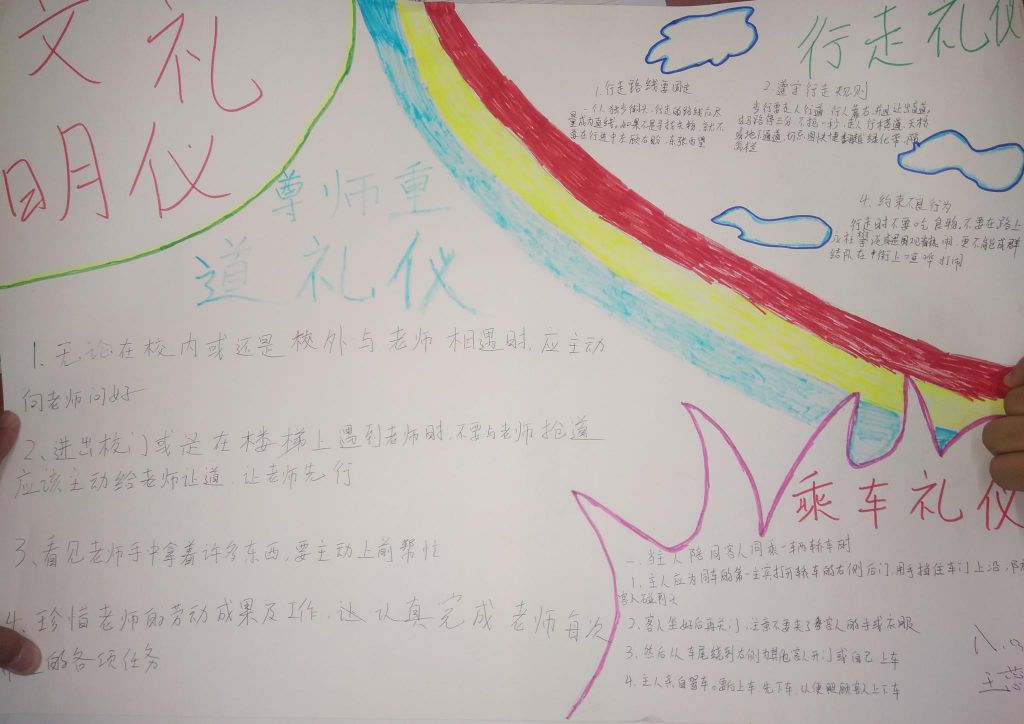 文 礼
明 仪
尊师重
道 礼 仪
1. 无论在校内或还是校外与老师相遇时,应主动
向老师问好
2、进出校门或是在楼梯上遇到老师时,不要与老师抢道
应该主动给老师让道、让老师先行
3、看见老师手中拿着许多东西,要主动上前帮忙
4、珍惜老师的劳动成果及工作,认真完成老师每次
的各项任务
行走礼仪
1.行走路线要固定
一个人独步街头,行走的路线应尽
量成为直线。如果不是寻找失物,就不
要在行进中左顾右盼,东张西望
2.遵守行走规则
步行要走人行道,行人靠右,并让出盲道,
过马路停三分,不抢一秒,走人行横道、天桥
4、约束不良行为
行走时不要吃食物。不要在路上
更不能成群
结队在街上喧哗打闹
乘车礼仪
一、当主人陪同客人同乘一辆轿车时
1、主人应为同车的第一主宾打开轿车的右侧后门,用手挡住车门上沿,防
客人碰到头
2、客人坐好后再关门,注意不要夹了客人的手或衣服
3、然后从车尾绕到左侧为其他客人开门或自己上车
4.主人亲自驾车。要后上车,先下车,以便照顾客人上下车